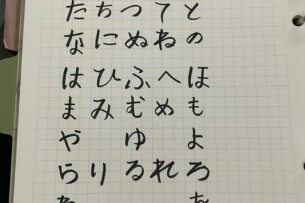 たちつてと
なにぬねの
はひふへほ
まみむめも
や ゆ よ
らりるれろ